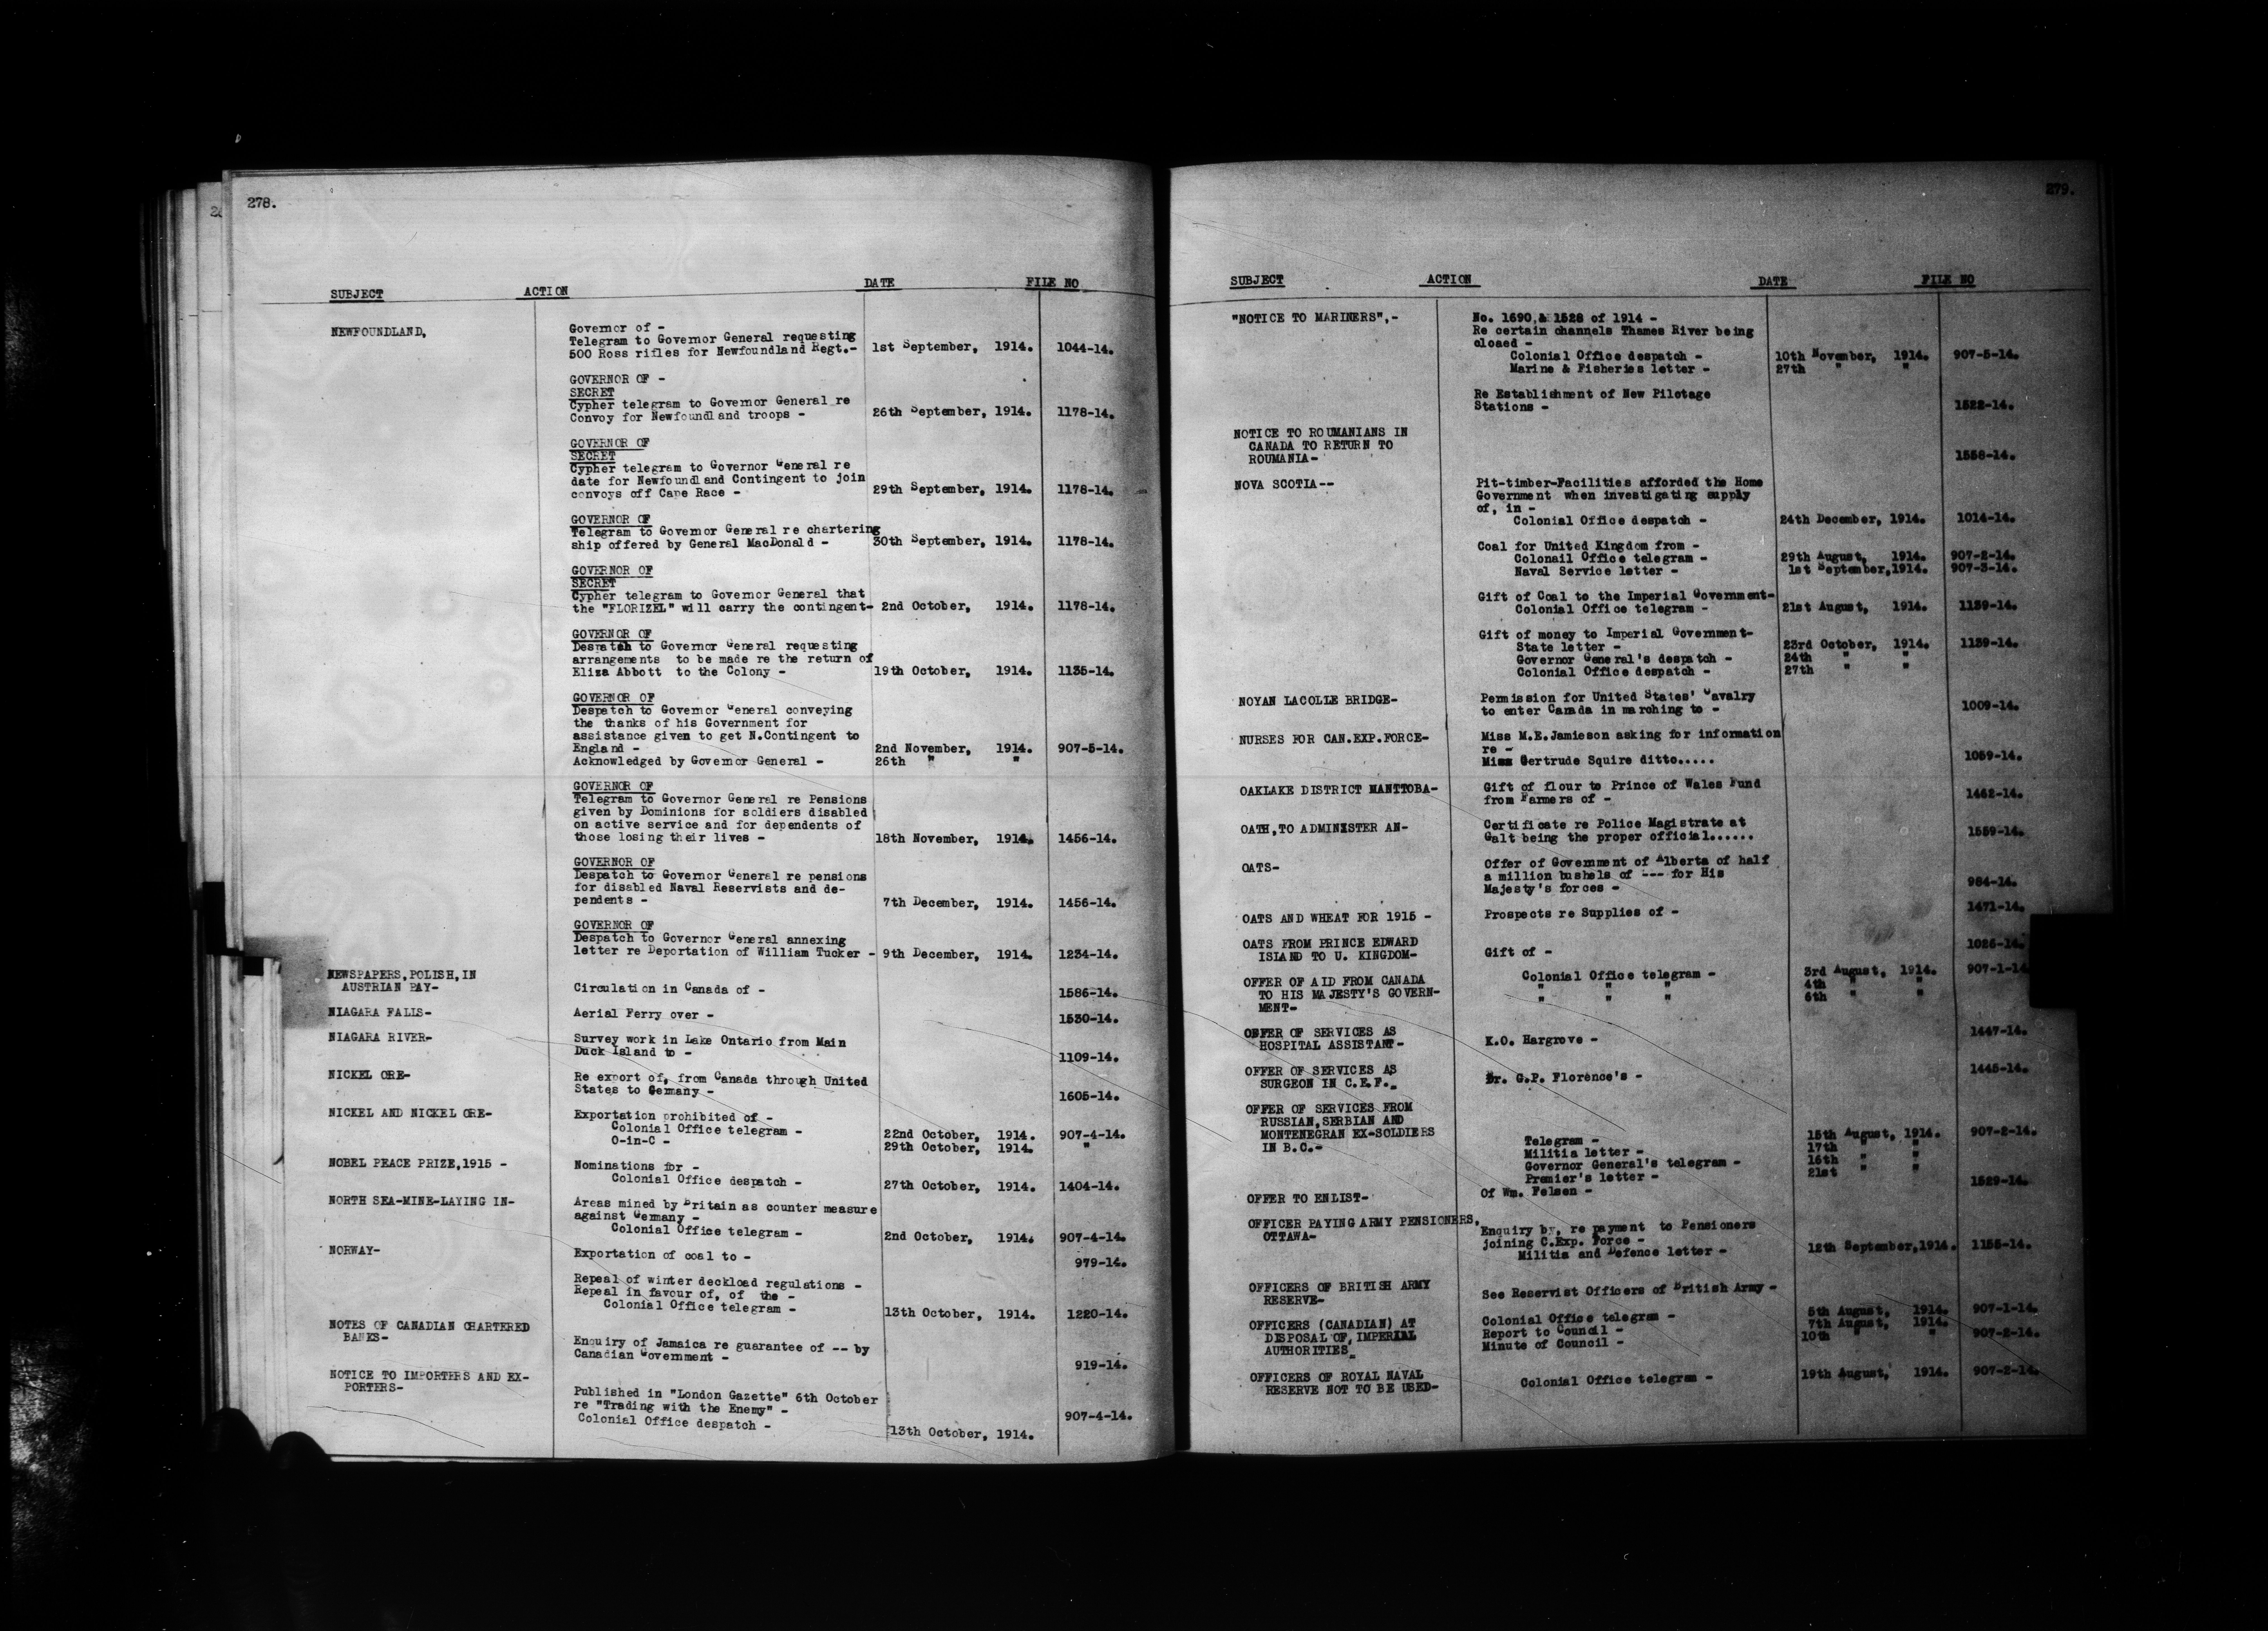 278.
SUBJECT ACTION DATE FILE NO
NEWFOUNDLAND, Governor of -
Telegram to Governor General requesting
500 Ross rifles for Newfoundland Regt.- 1st September, 1914. 1044-14.
GOVERNOR OF -
SECRET
Cypher telegram to Governor General re
Convoy for Newfoundland troops - 26th September, 1914. 1178-14.
GOVERNOR OF
SECRET
Cypher telegram to Governor General re
date for Newfoundland Contingent to join
convoys off Cape Race - 29th September, 1914. 1178-14.
GOVERNOR OF
Telegram to Governor General re chartering
ship offered by General MacDonald - 30th September, 1914. 1178-14.
GOVERNOR OF
SECRET
Cypher telegram to Governor General that
the "FLORIZEL" will carry the contingent- 2nd October, 1914. 1178-14.
GOVERNOR OF
Despatch to Governor General requesting
arrangements to be made re the return of
Eliza Abbott to the Colony - 19th October, 1914. 1135-14.
GOVERNOR OF
Despatch to Governor General conveying
the thanks of his Government for
assistance given to get N.Contingent to
England - 2nd November, 1914. 907-5-14.
Acknowledged by Governor General - 26th " "
GOVERNOR OF
Telegram to Governor General re Pensions
given by Dominions for soldiers disabled
on active service and for dependents of
those losing their lives - 18th November, 1914. 1456-14.
GOVERNOR OF
Despatch to Governor General re pensions
for disabled Naval Reservists and de-
pendents - 7th December, 1914. 1456-14.
GOVERNOR OF
Despatch to Governor General annexing
letter re Deportation of William Tucker - 9th December, 1914. 1234-14.
NEWSPAPERS, POLISH, IN
AUSTRIAN PAY- Circulation in Canada of - 1586-14.
NIAGARA FALLS- Aerial Ferry over - 1530-14.
NIAGARA RIVER- Survey work in Lake Ontario from Main
Duck Island to - 1109-14.
NICKEL ORE- Re export of, from Canada through United
States to Germany - 1605-14.
NICKEL AND NICKEL ORE- Exportation prohibited of -
Colonial Office telegram - 22nd October, 1914. 907-4-14.
O-in-C - 29th October, 1914. "
NOBEL PEACE PRIZE,1915 - Nominations for -
Colonial Office despatch - 27th October, 1914. 1404-14.
NORTH SEA-MINE-LAYING IN- Areas mined by Britain as counter measure
against Germany -
Colonial Office telegram - 2nd October, 1914. 907-4-14.
NORWAY- Exportation of coal to - 979-14.
Repeal of winter deckload regulations -
Repeal in favour of, of the -
Colonial Office telegram - 13th October, 1914. 1220-14.
NOTES OF CANADIAN CHARTERED
BANKS- Enquiry of Jamaica re guarantee of -- by
Canadian Government - 919-14.
NOTICE TO IMPORTERS AND EX-
PORTERS- Published in "London Gazette" 6th October
re "Trading with the Enemy" - 907-4-14.
Colonial Office despatch - 13th October, 1914.
279.
SUBJECT ACTION DATE FILE NO
"NOTICE TO MARINERS",- No. 1690,& 1528 of 1914 -
Re certain channels Thames River being
closed -
Colonial Office despatch - 10th November, 1914. 907-5-14.
Marine & Fisheries letter - 27th " "
Re Establishment of New Pilotage
Stations - 1522-14.
NOTICE TO ROUMANIANS IN
CANADA TO RETURN TO
ROUMANIA- 1558-14.
NOVA SCOTIA-- Pit-timber-Facilities afforded the Home
Government when investigating supply
of, in -
Colonial Office despatch - 24th December, 1914. 1014-14.
Coal for United Kingdom from -
Colonail Office telegram - 29th August, 1914. 907-2-14.
Naval Service letter - 1st September,1914. 907-3-14.
Gift of Coal to the Imperial Government-
Colonial Office telegram - 21st August, 1914. 1139-14.
Gift of money to Imperial Government-
State letter - 23rd October, 1914. 1139-14.
Governor General's despatch - 24th " "
Colonial Office despatch - 27th " "
NOYAN LACOLLE BRIDGE- Permission for United States' Cavalry
to enter Canada in marching to - 1009-14.
NURSES FOR CAN.EXP.FORCE- Miss M.E.Jamieson asking for information
re -
Miss Gertrude Squire ditto..... 1059-14.
OAKLAKE DISTRICT MANITOBA- Gift of flour to Prince of Wales Fund
from Farmers of - 1462-14.
OATH,TO ADMINISTER AN- Certificate re Police Magistrate at
Galt being the proper official...... 1559-14.
OATS- Offer of Government of Alberta of half
a million bushels of --- for His
Majesty's forces - 984-14.
OATS AND WHEAT FOR 1915 - Prospects re Supplies of - 1471-14.
OATS FROM PRINCE EDWARD
ISLAND TO U. KINGDOM- Gift of - 1026-14.
OFFER OF AID FROM CANADA Colonial Office telegram - 3rd August, 1914. 907-1-14
TO HIS MAJESTY'S GOVERN- " " " 4th " "
MENT- " " " 6th " "
OFFER OF SERVICES AS
HOSPITAL ASSISTANT- K.O. Hargrove - 1447-14.
OFFER OF SERVICES AS
SURGEON IN C.E.F.- Dr. G.P. Florence's - 1445-14.
OFFER OF SERVICES FROM
RUSSIAN,SERBIAN AND
MONTENEGRAN EX-SOLDIERS Telegram - 15th August, 1914. 907-2-14.
IN B.C.- Militia letter - 17th " "
Governor General's telegram - 16th " "
Premier's letter - 21st " "
OFFER TO ENLIST- Of Wm. Felsen - 1529-14.
OFFICER PAYING ARMY PENSIONERS,
OTTAWA- Enquiry by, re payment to Pensioners
joining C.Exp. Force -
Militia and Defence letter - 12th September,1914. 1155-14.
OFFICERS OF BRITISH ARMY
RESERVE- See Reservist Officers of British Army -
OFFICERS (CANADIAN) AT Colonial Office telegram - 5th August, 1914. 907-1-14.
DISPOSAL OF, IMPERIAL Report to Council - 7th August, 1914.
AUTHORITIES- Minute of Council - 10th " " 907-2-14.
OFFICERS OF ROYAL NAVAL
RESERVE NOT TO BE USED- Colonial Office telegram - 19th August, 1914. 907-2-14.